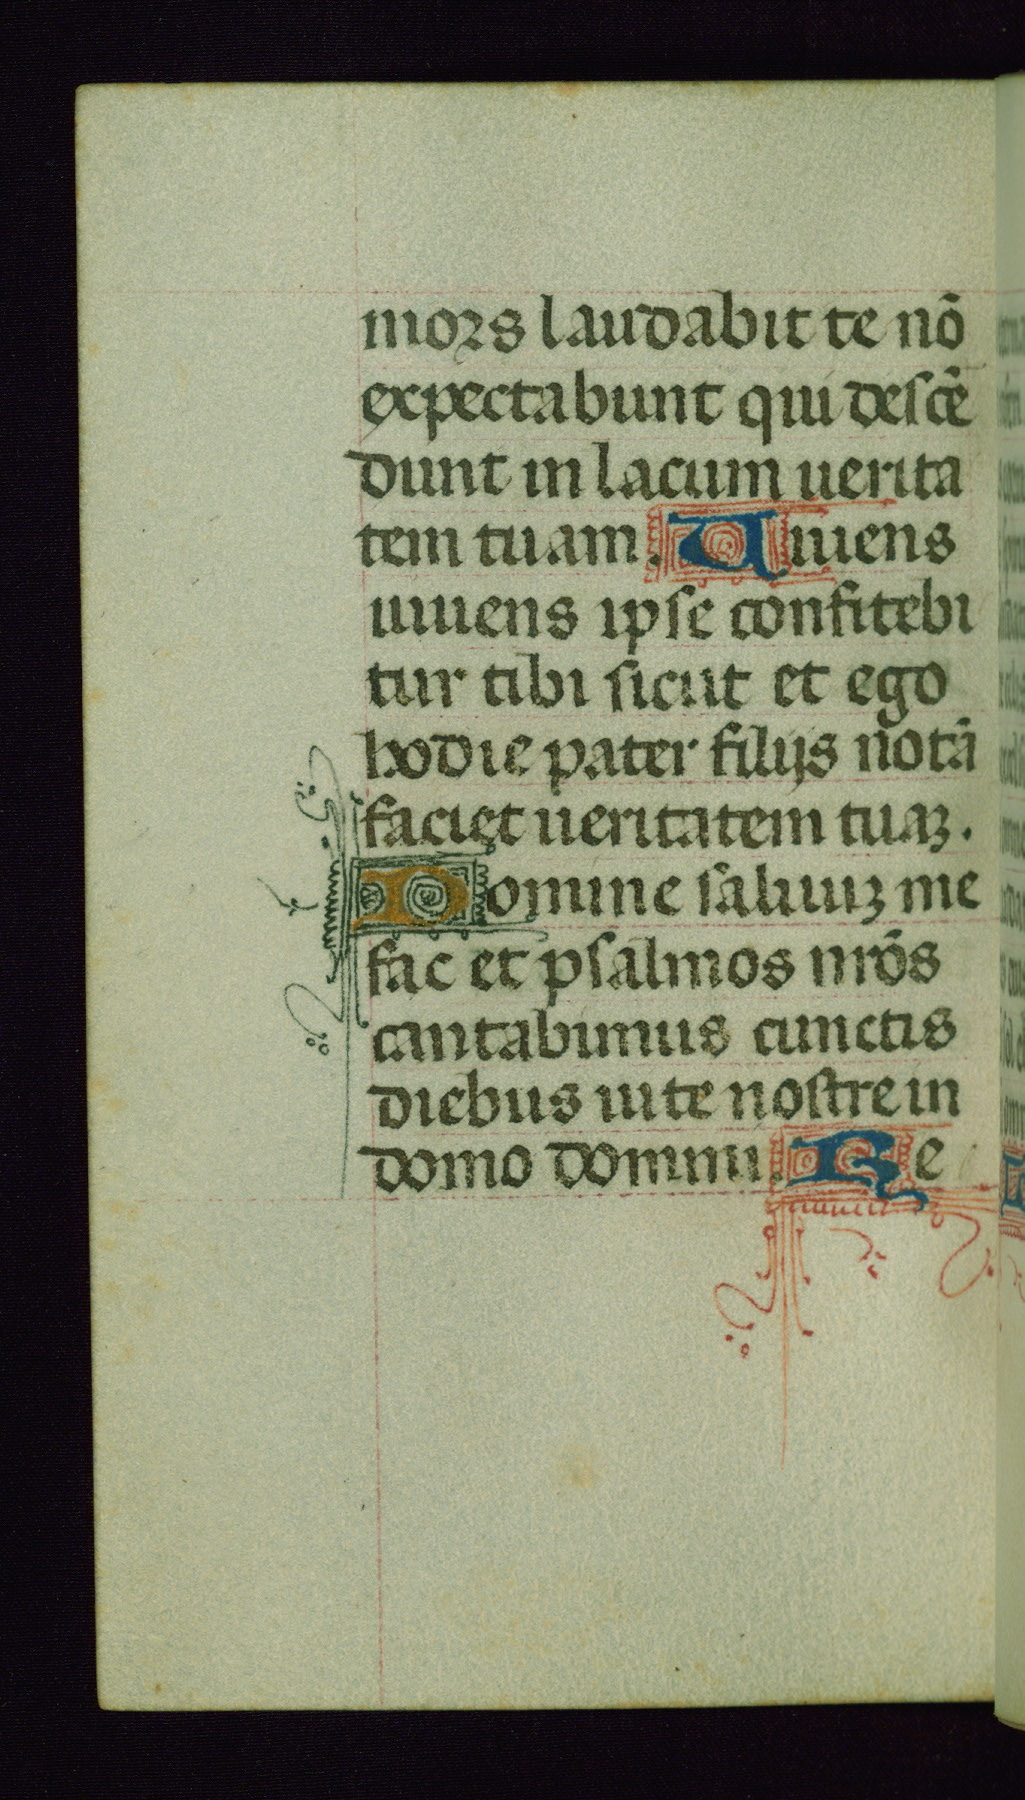 mors laudabit te nō
expectabunt qui descē
dunt in lacum uerita
tem tuam. Uiuens
uiuens ipse confitebi
tur tibi sicut et ego
hodie pater filijs notā
faciet ueritatem tuaꝫ.
Domine saluuꝫ me
fac et psalmos nr̄os
cantabimus cunctis
diebus uite nostre in
domo domini. Re